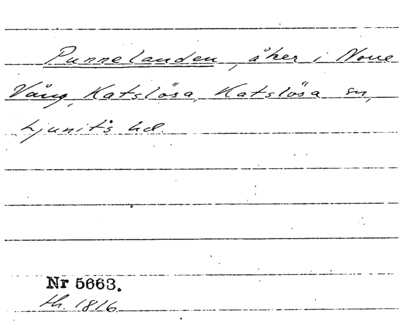 Punnelanden, åker i Norre
Vång, Katslösa, Katslösa sn,
Ljunits hd.
Nr 5663.
th. 1816